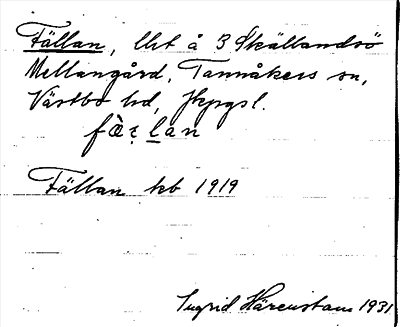 Fällan, lht å 3 Skällandsö
Mellangård, Tannåkers sn,
Västbo hd, Jkpgsl.
Fällan kb 1919
Ingrid Härenstam 1931